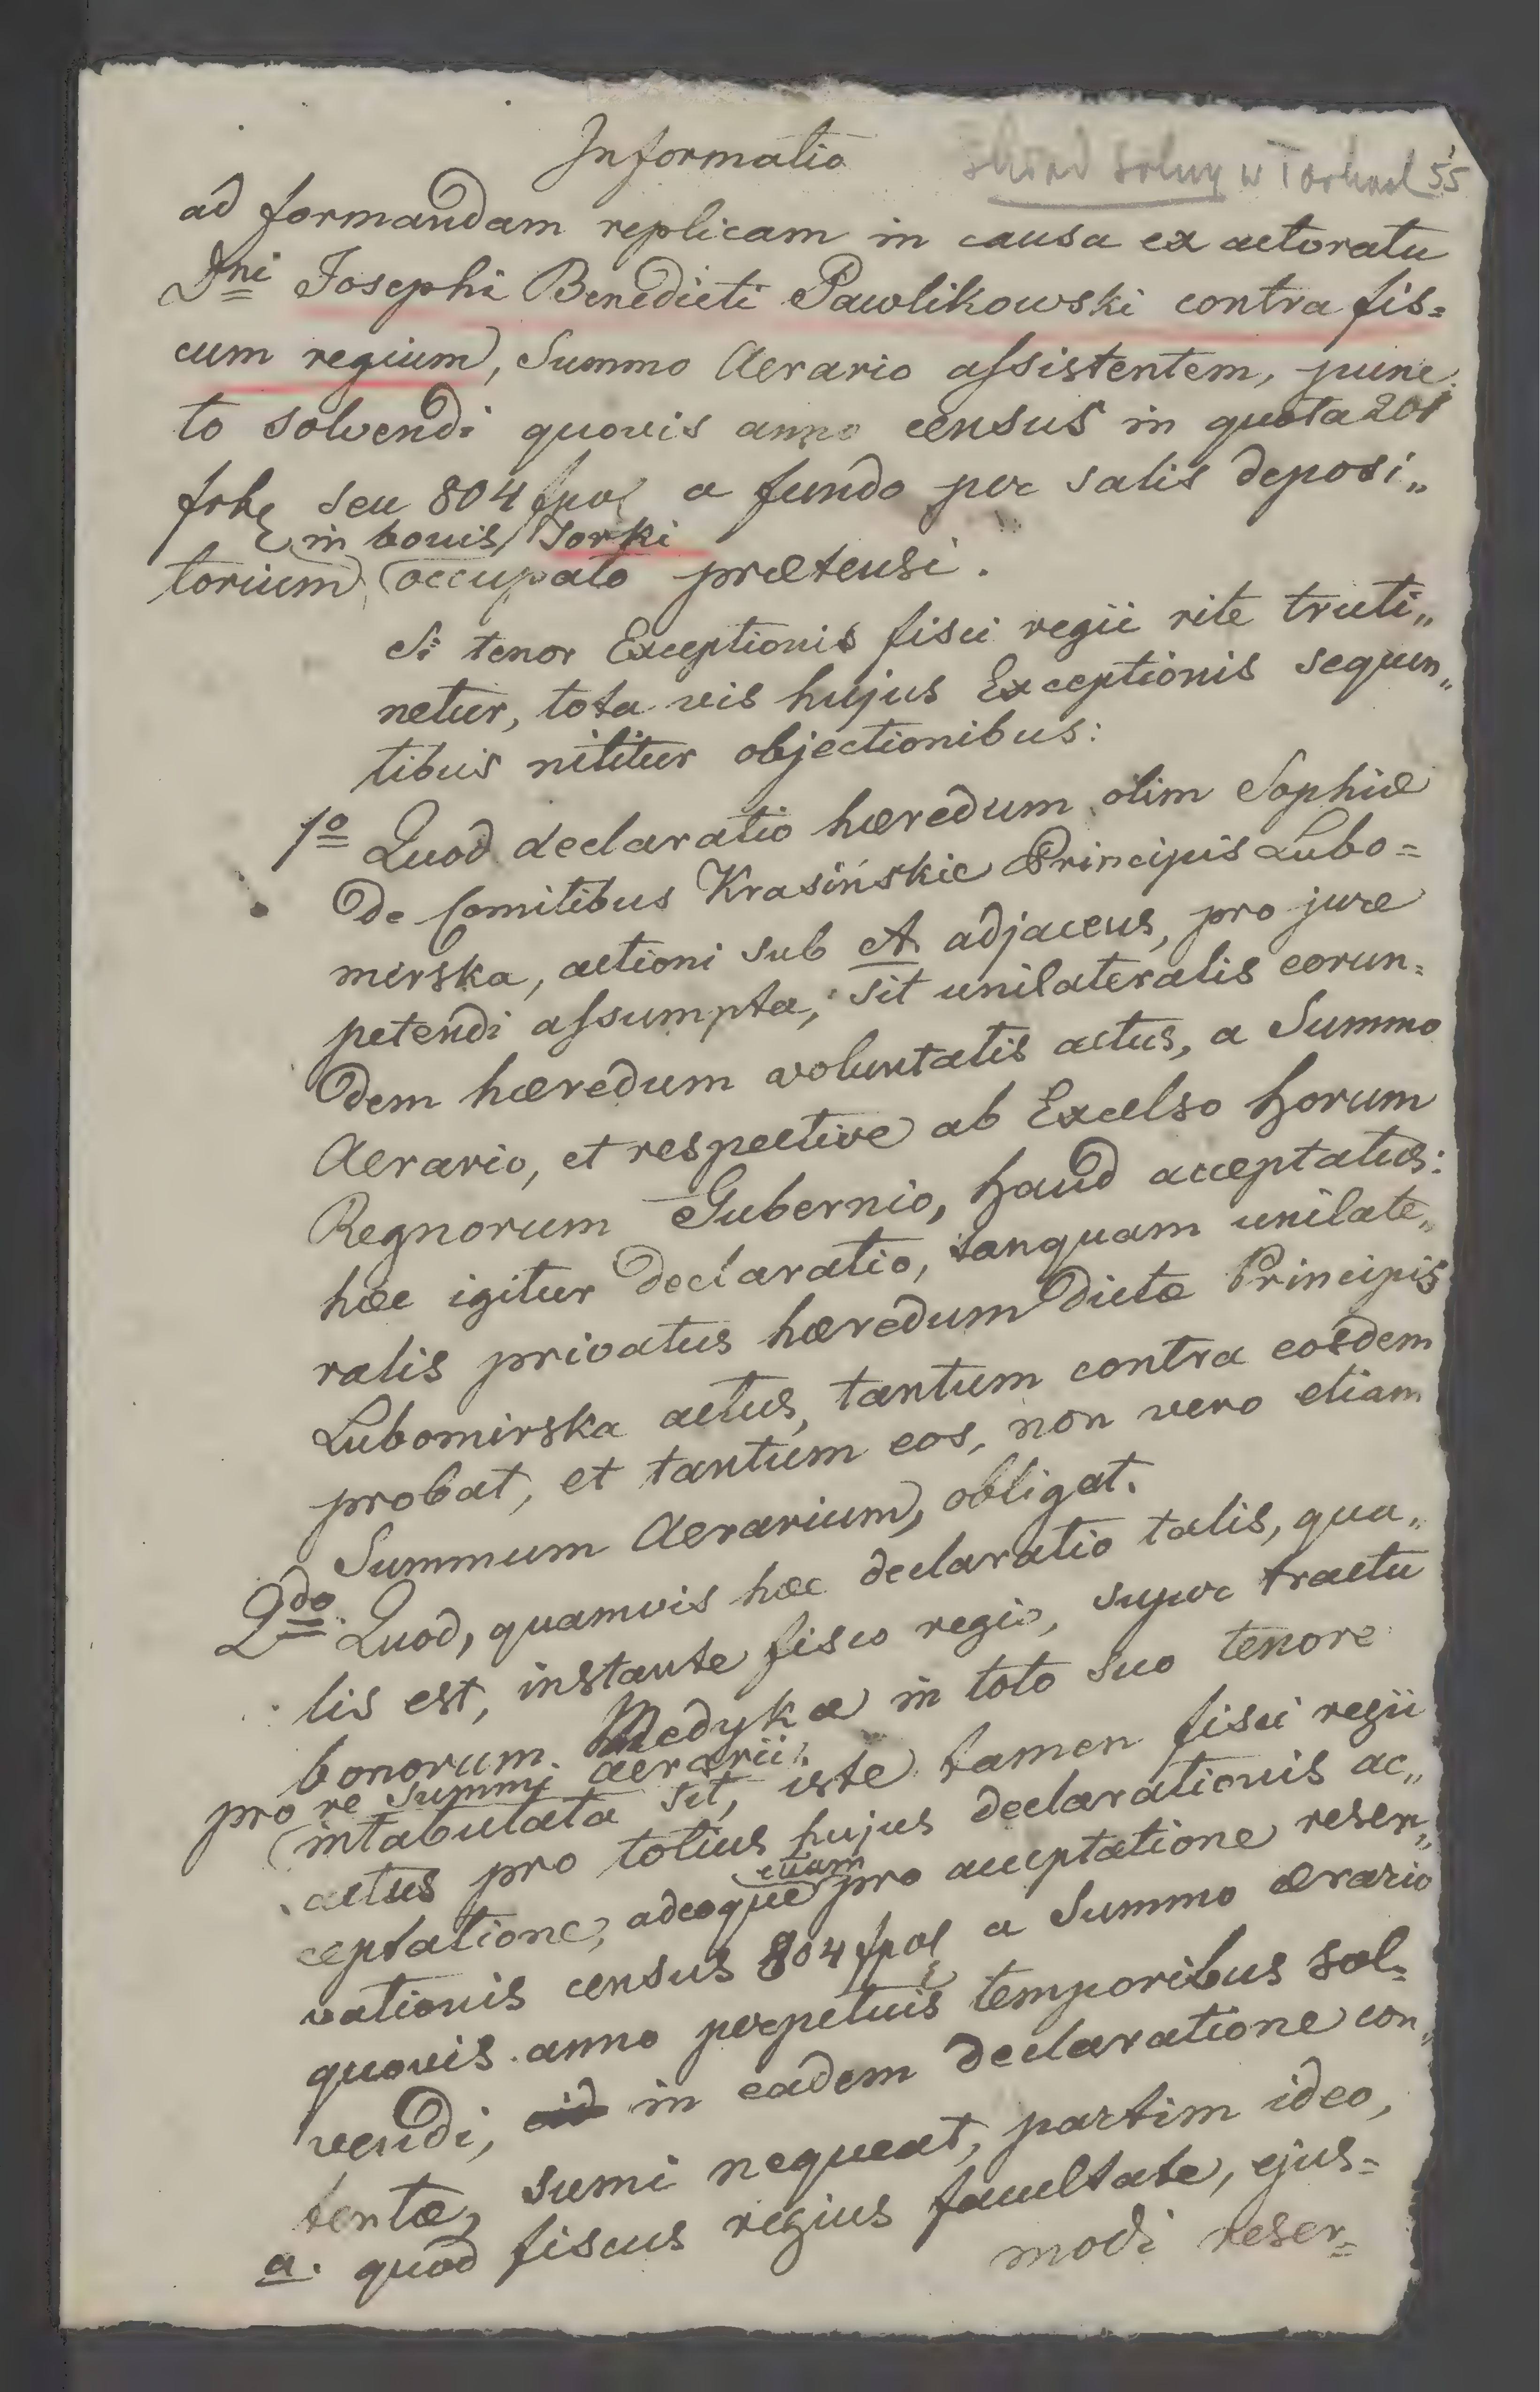 Informatio
Skład Solny w Torkach 55
ad formandam replicam in causa ex actoratu
Dni Josephi Benedicti Pawlikowski contra fis=
cum regium, Summo Aerario assistentem, punc
to solvendi quovis anno census in quota 201
frh seu 804 fpol a fundo per salis deposi„
in bonis Torki
torium occupato prætensi.
Si tenor Exceptionis fisci regii rite truti„
netur, tota vis hujus Exceptionis sequen„
tibus nititur objectionibus:
1o Quod declaratio hæredum olim Sophiæ
de Comitibus Krasińskie Principis Lubo=
mirska, actioni sub A. adjacens, pro jure
petendi assumpta, sit unilateralis eorun=
dem hæredum voluntatis actus, a Summo
Aerario, et respective ab Excelso horum
Regnorum Gubernio, haud acceptatus:
hæc igitur declaratio, tanquam unilate„
ralis privatus hæredum dictæ Principis
Lubomirska actus, tantum contra eosdem
probat, et tantum eos, non vero etiam
Summum Aerarium, obligat.
2do Quod, quamvis hæc declaratio talis, qua„
lis est, instante fisco regio, super tractu
bonorum Medyka in toto suo tenore
pro re Summi aerarii
intabulata sit, iste tamen fisci regii
actus pro totius hujus declarationis ac„
ceptatione, adeoque etiam pro acceptatione reser„
vationis census 804 fpol a Summo ærario
quovis anno perpetuis temporibus sol=
vendi, in eadem declaratione con„
tentæ, sumi nequeat, partim ideo,
a. quod fiscus regius facultate, ejus=
modi reser=